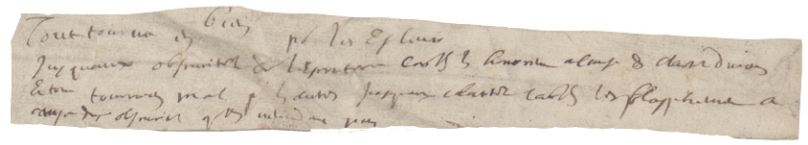 Tout tourne en bien pr les Esleus
Jusquaux obscuritez de lescriture car ils les honorent a cause des clartez divines
Et tout tourne en mal pr les autres Jusquaux clartez car ils les blasphement a
cause des obscuritez qu ils nentendent pas